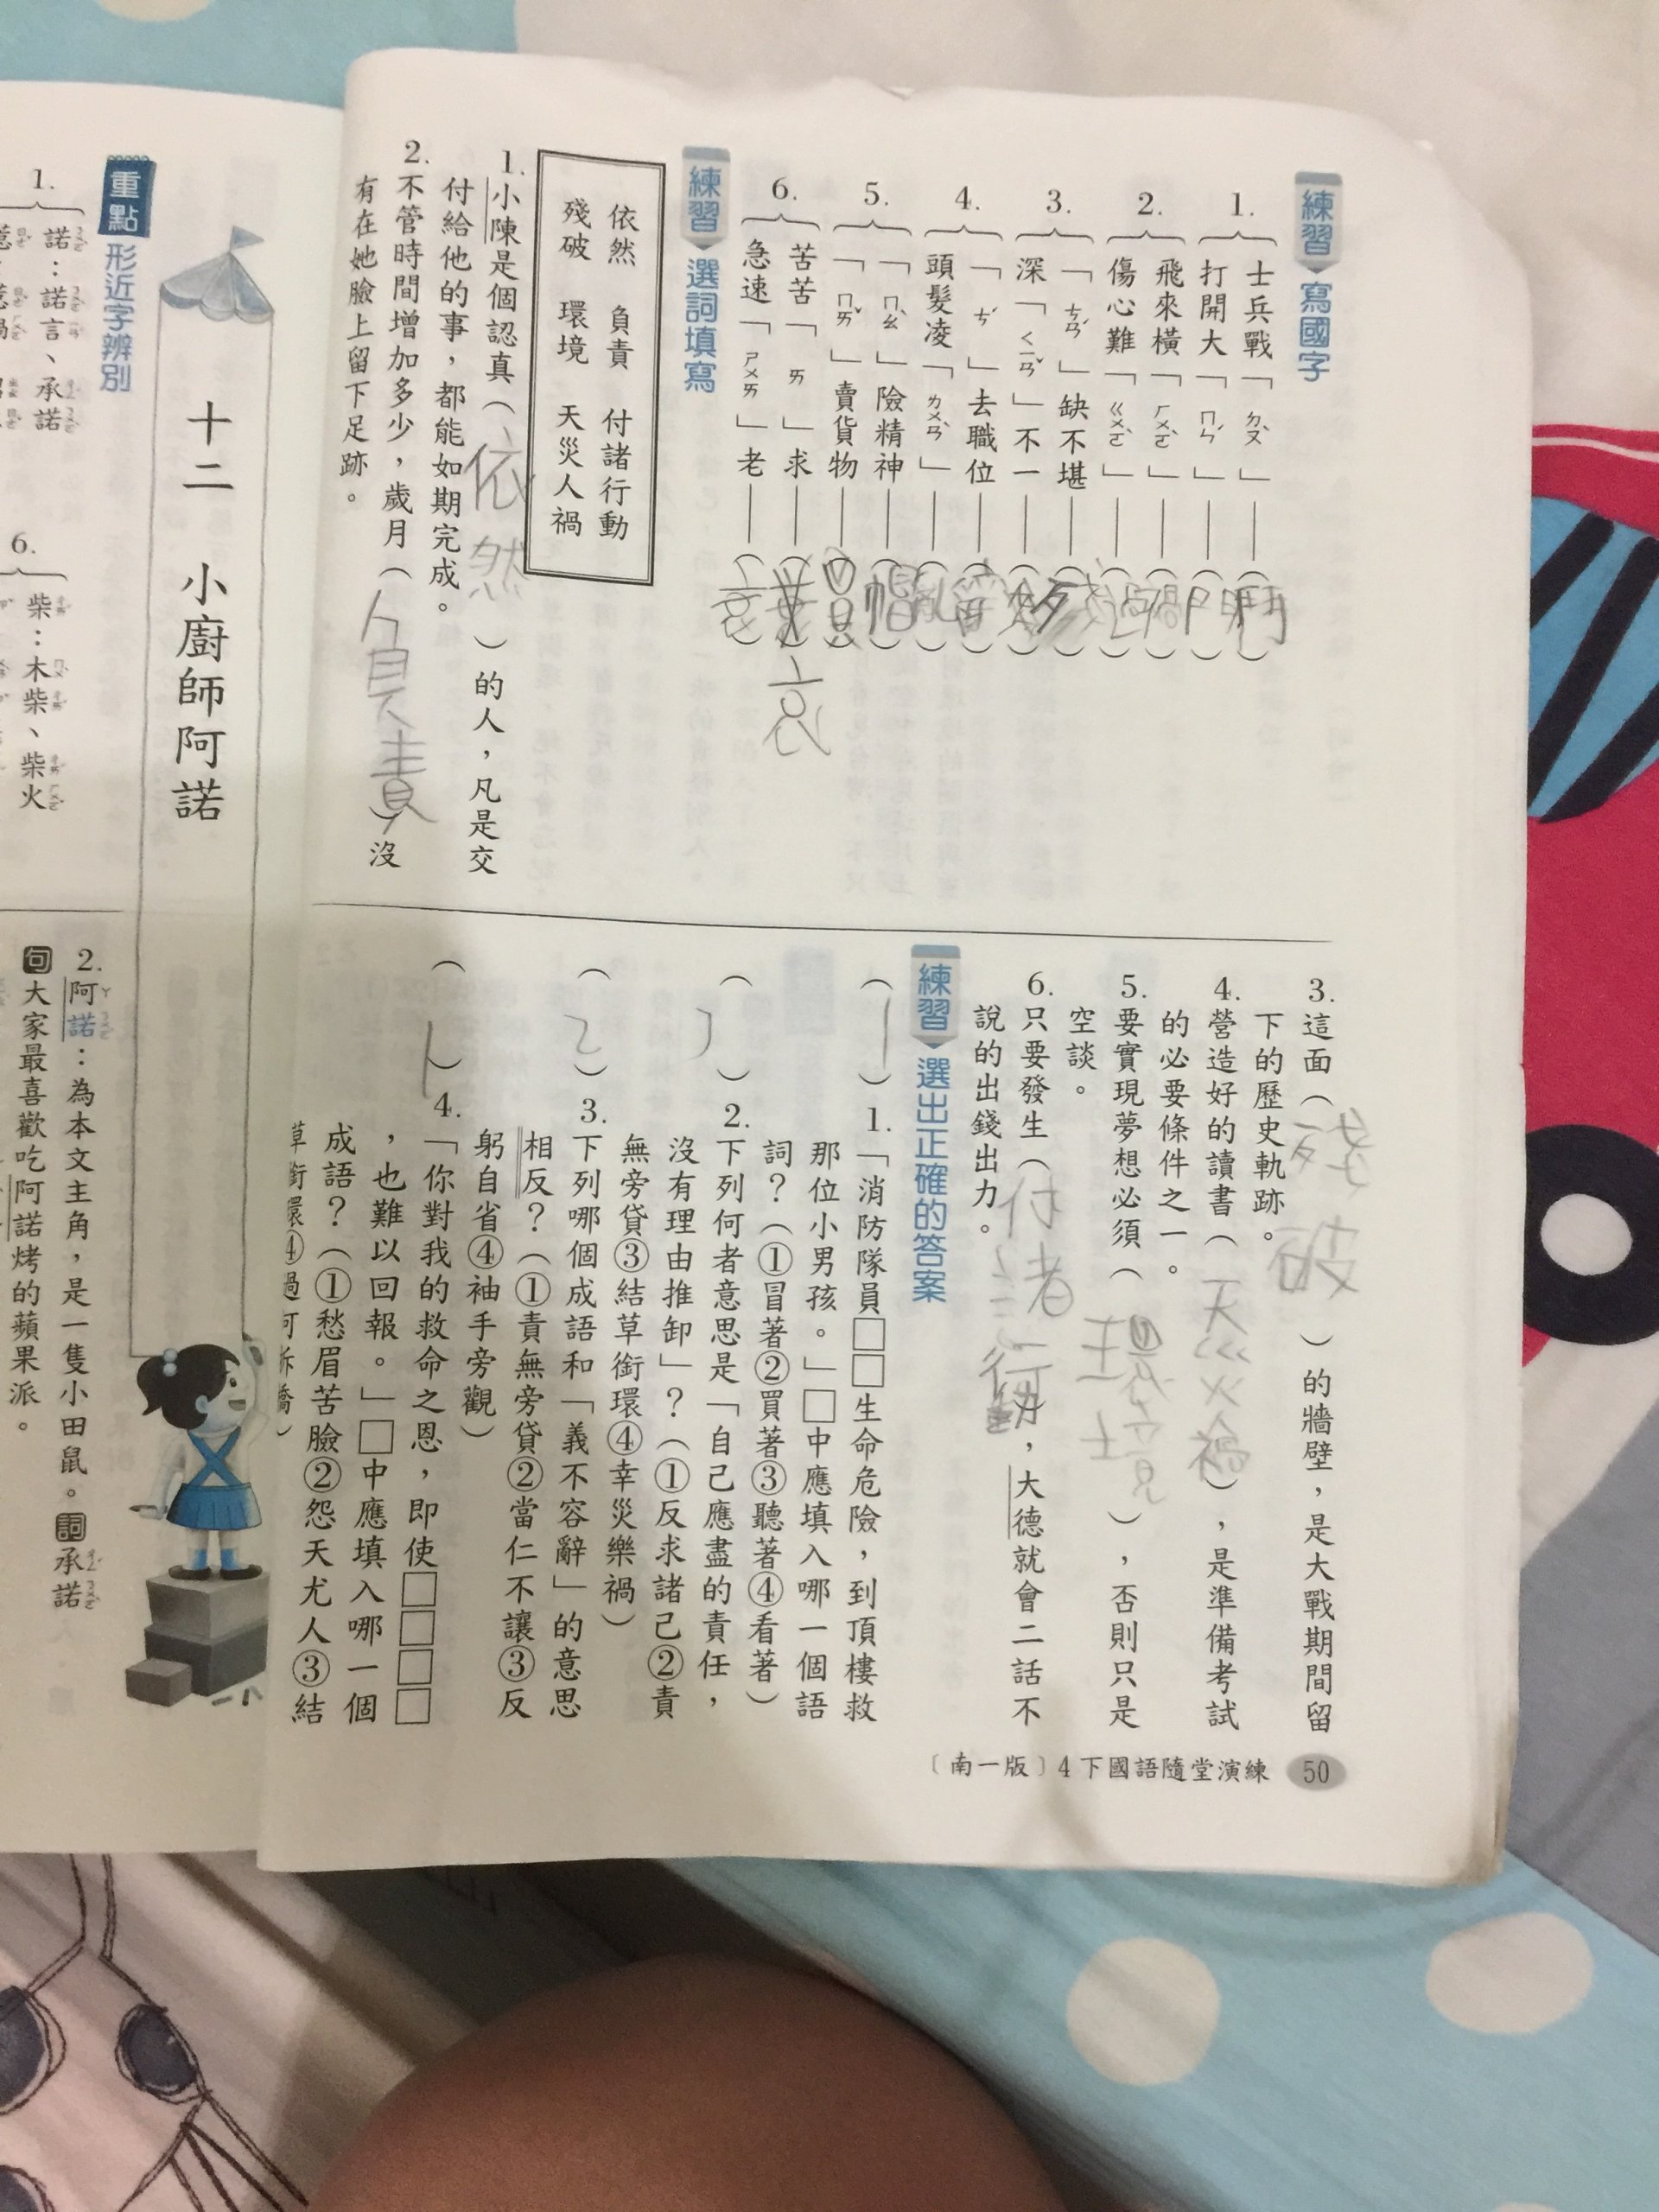 練習 寫國字
1. 士兵戰「ㄉㄡˋ」——(鬥)
打開大「ㄇㄣˊ」——(門)
2. 飛來橫「ㄏㄨㄛˋ」——(禍)
傷心難「ㄍㄨㄛˋ」——(過)
3. 「ㄘㄢˊ」缺不堪——(殘)
深「ㄑㄧㄢˇ」不一——( )
4. 「ㄘˊ」去職位——(辭)
頭髮凌「ㄌㄨㄢˋ」——(亂)
5. 「ㄇㄠˋ」險精神——(帽)
「ㄇㄞˇ」賣貨物——(買)
6. 苦苦「ㄞ」求——( )哀
急速「ㄕㄨㄞ」老——( )
練習 選詞填寫
依然 負責 付諸行動
殘破 環境 天災人禍
1. 小陳是個認真(依然)的人,凡是交
付給他的事,都能如期完成。
2. 不管時間增加多少,歲月(負責)沒
有在她臉上留下足跡。
3. 這面(殘破)的牆壁,是大戰期間留
下的歷史軌跡。
4. 營造好的讀書(天災人禍),是準備考試
的必要條件之一。
5. 要實現夢想必須(環境),否則只是
空談。
6. 只要發生(付諸行動,大德就會二話不
說的出錢出力。
練習 選出正確的答案
(1)1.「消防隊員□□生命危險,到頂樓救
那位小男孩。」□中應填入哪一個語
詞?(①冒著②買著③聽著④看著)
( )2. 下列何者意思是「自己應盡的責任,
沒有理由推卸」?(①反求諸己②責
無旁貸③結草銜環④幸災樂禍)
(2)3. 下列哪個成語和「義不容辭」的意思
相反?(①責無旁貸②當仁不讓③反
躬自省④袖手旁觀)
(1)4.「你對我的救命之恩,即使□□□□
,也難以回報。」□中應填入哪一個
成語?(①愁眉苦臉②怨天尤人③結
草銜環④過河拆橋)
〔南一版〕4下國語隨堂演練 50
十二 小廚師阿諾
重點 形近字辨別
1. 諾:諾言、承諾
6. 柴:木柴、柴火
2. 阿諾:為本文主角,是一隻小田鼠。詞承諾
句大家最喜歡吃阿諾烤的蘋果派。